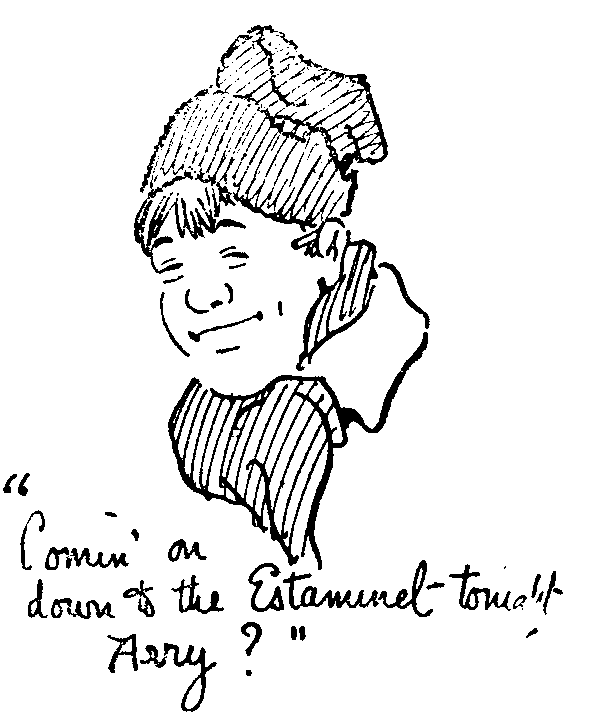 "Comin' on
down to the Estaminet tonight
Arry? "